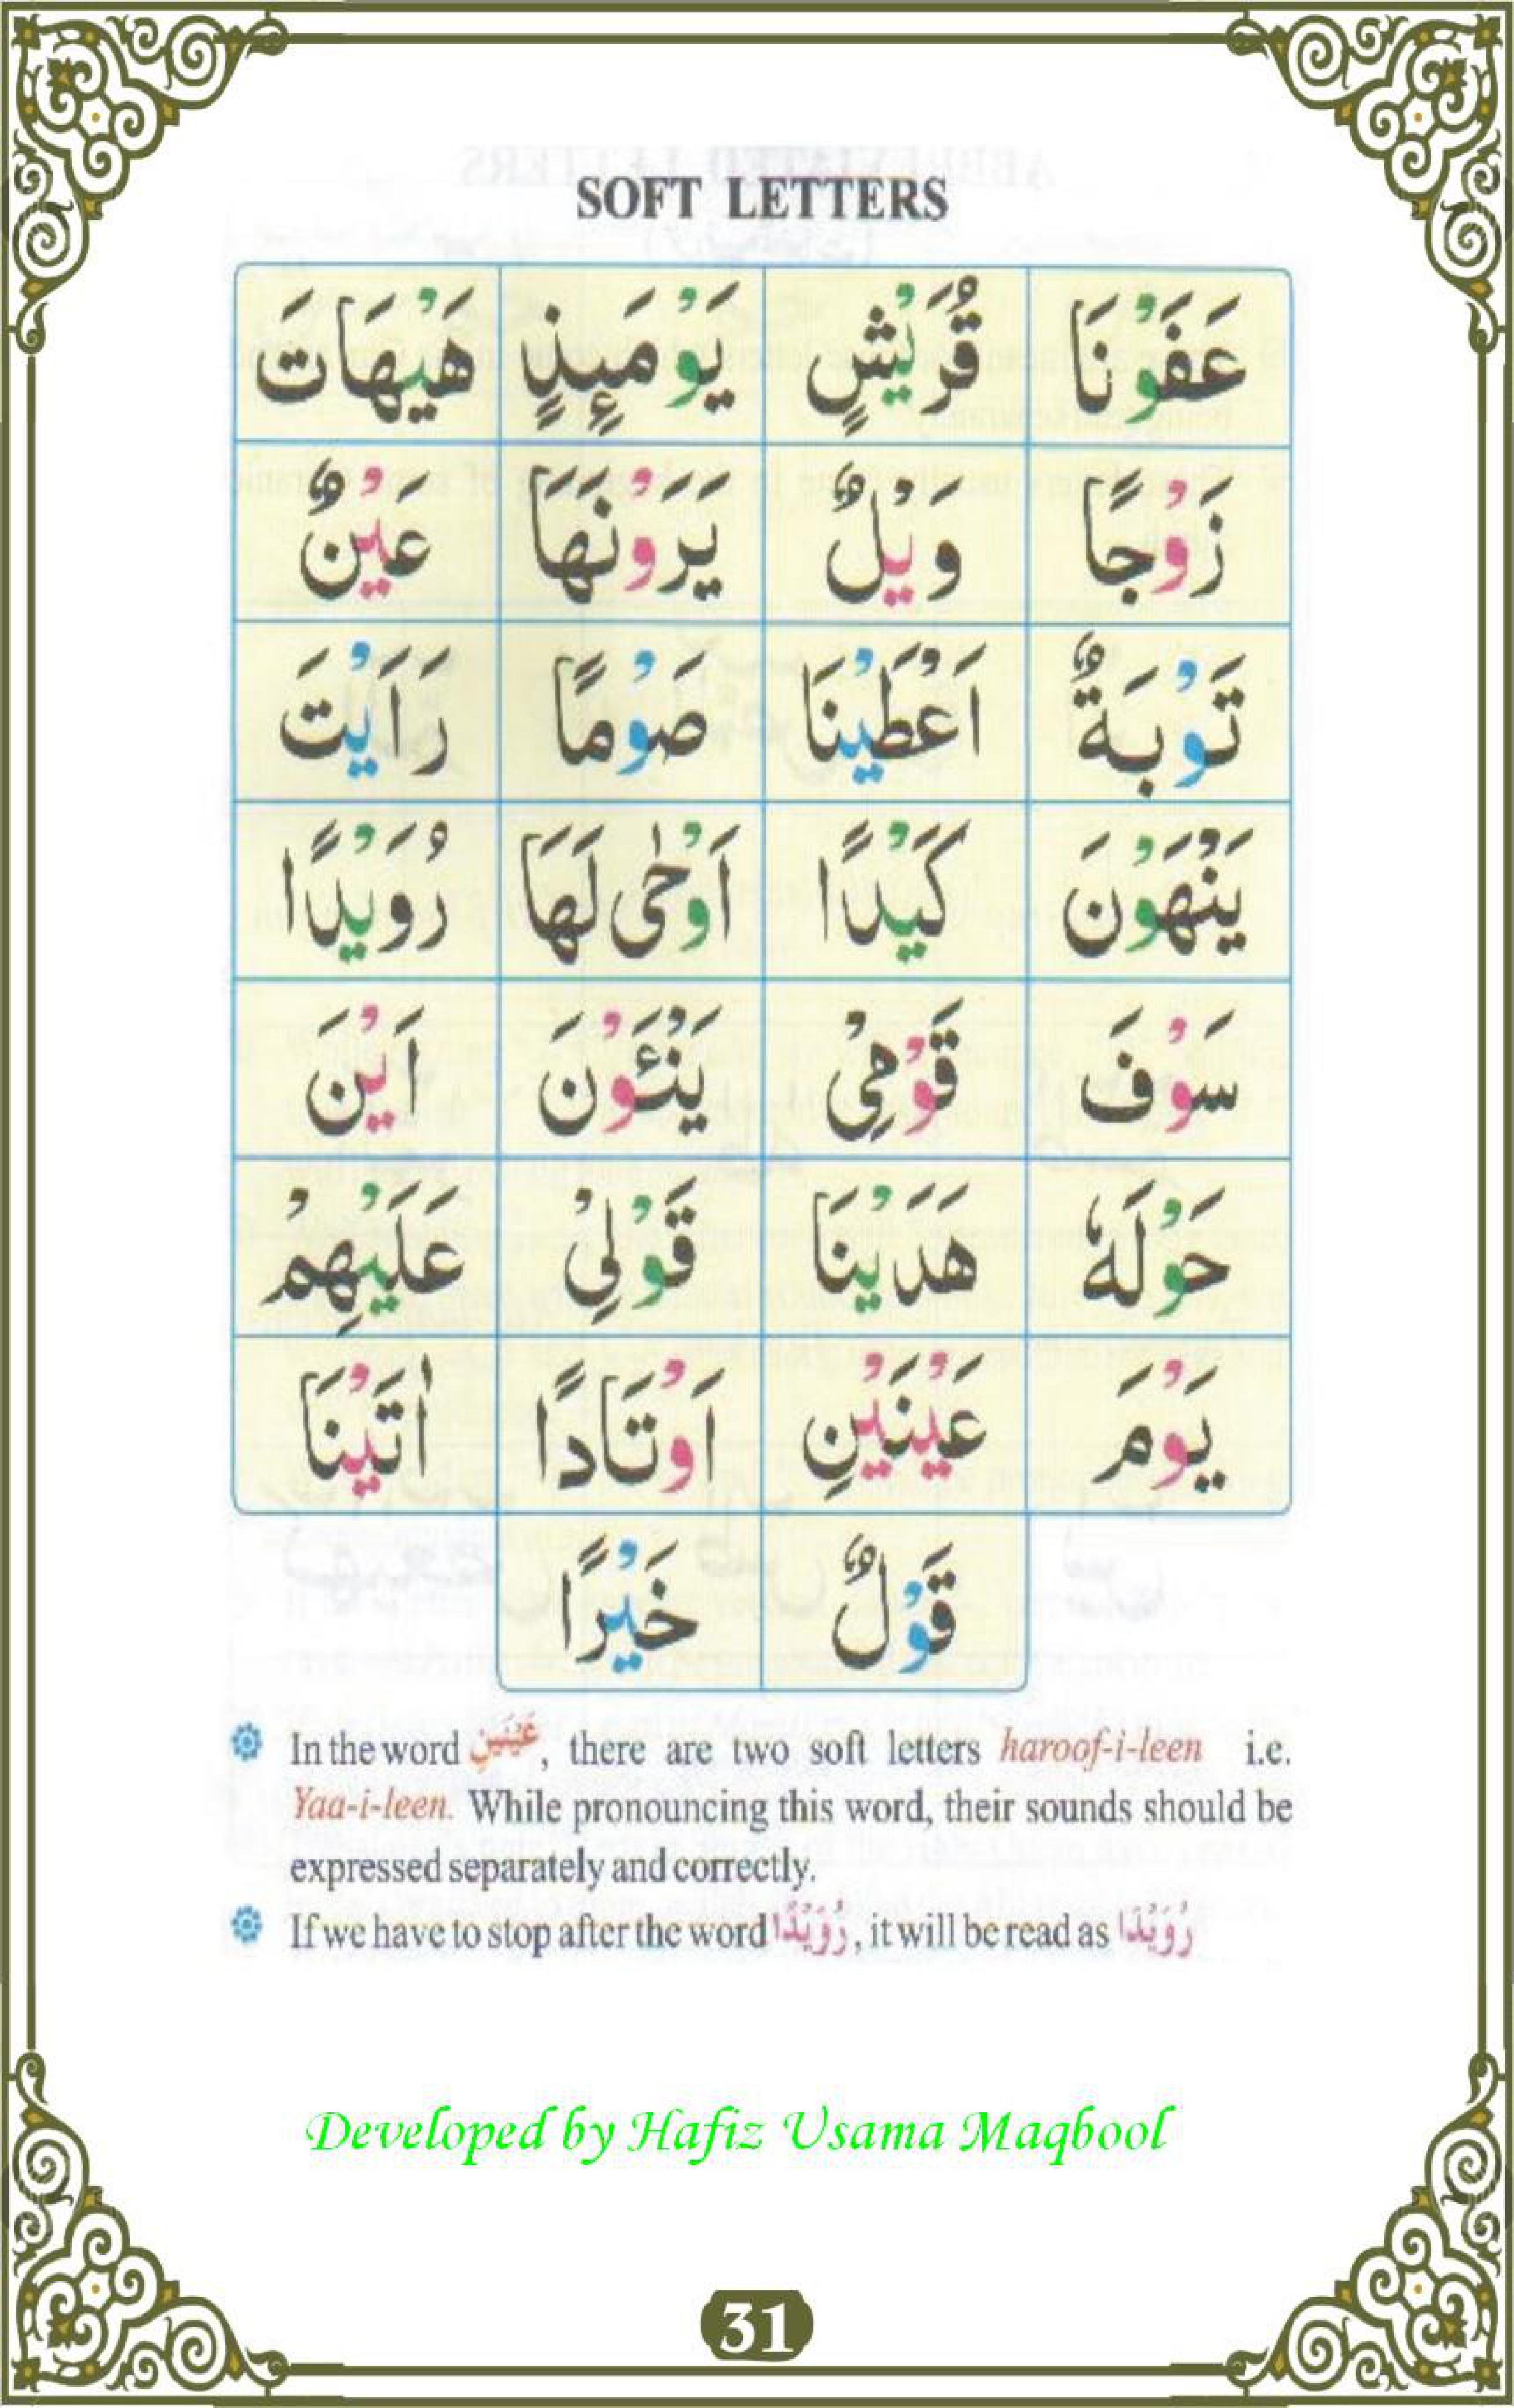 SOFT LETTERS
عَفَوْنَا قُرَيْشٍ يَوْمَئِذٍ هَيْهَاتَ
زَوْجًا وَيْلٌ يَرَوْنَهَا عَيْنٌ
تَوْبَةٌ اَعْطَيْنَا صَوْمًا رَاَيْتَ
يَنْهَوْنَ كَيْدًا اَوْحٰى لَهَا رُوَيْدًا
سَوْفَ قَوْمِيْ يَنْئَوْنَ اَيْنَ
حَوْلَهٗ هَدَيْنَا قَوْلِيْ عَلَيْهِمْ
يَوْمَ عَيْنَيْنِ اَوْتَادًا اٰتَيْنَا
قَوْلٌ خَيْرًا
In the word عَيْنَيْنِ, there are two soft letters haroof-i-leen i.e.
Yaa-i-leen. While pronouncing this word, their sounds should be
expressed separately and correctly.
If we have to stop after the word رُوَيْدًا, it will be read as رُوَيْدَا
Developed by Hafiz Usama Maqbool
31